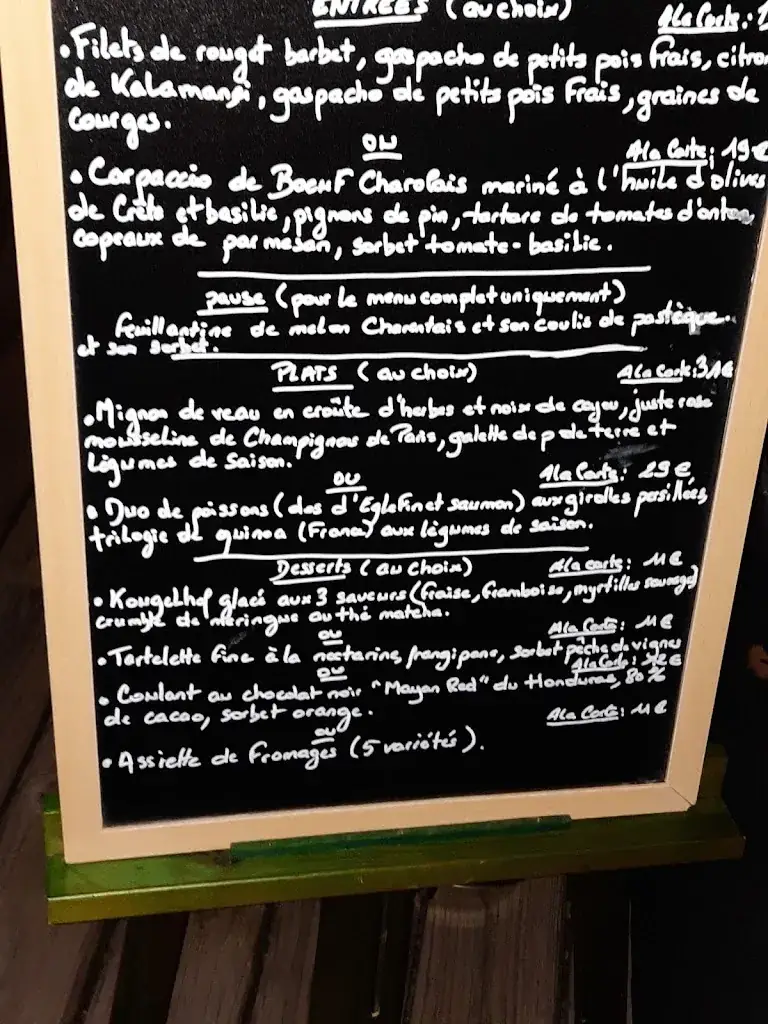 ENTRÉES (au choix)
A la Carte: 1
• Filets de rouget barbet, gaspacho de petits pois frais, citron
de Kalamansi, gaspacho de petits pois Frais, graines de
courges.
ou
A la Carte: 19 €
• Carpaccio de Boeuf Charolais mariné à l'huile d'olives
de Crète et basilic, pignons de pin, tartare de tomates d'antan,
copeaux de parmesan, sorbet tomate-basilic.
pause (pour le menu complet uniquement)
feuillantine de melon Charentais et son coulis de pastèque
et son sorbet.
PLATS (au choix)
A la Carte: 31 €
• Mignon de veau en croûte d'herbes et noix de cajou, juste rosé
mousseline de Champignons de Paris, galette de p de terre et
légumes de saison.
ou
A la Carte: 29 €
• Duo de poissons (dos d'Eglefin et saumon) aux girolles persillées,
trilogie de quinoa (France) aux légumes de saison.
Desserts (au choix)
A la carte: 11 €
• Kougelhof glacé aux 3 saveurs (fraise, framboise, myrtilles sauvages)
crumble de meringue au thé matcha.
ou
A la Carte: 11 €
• Tartelette fine à la nectarine, frangipane, sorbet pêche de vignes
ou
A la Carte: €
• Coulant au chocolat noir "Mayan Red" du Honduras, 80%
de cacao, sorbet orange.
ou
A la Carte: 11 €
• Assiette de Fromages (5 variétés).